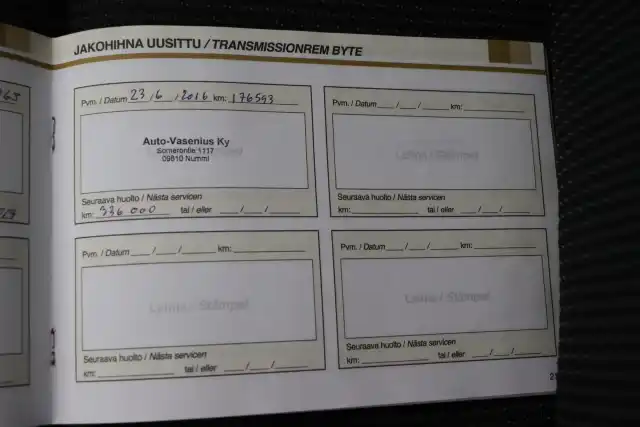 JAKOHIHNA UUSITTU / TRANSMISSIONREM BYTE
Pvm. / Datum 23 / 6 / 2016 km: 176593
Auto-Vasenius Ky
09810 Nummi
Seuraava huolto / Nästa servicen
km: 336 000 tai / eller __/__/__
Pvm. / Datum __/__/__ km:
Leima / Stämpel
Seuraava huolto / Nästa servicen
km: tai / eller __/__/__
Pvm. / Datum __/__/__ km:
Leima / Stämpel
Seuraava huolto / Nästa servicen
km: tai / eller __/__/__
Pvm. / Datum __/__/__ km:
Leima / Stämpel
Seuraava huolto / Nästa servicen
km: tai / eller __/__/__